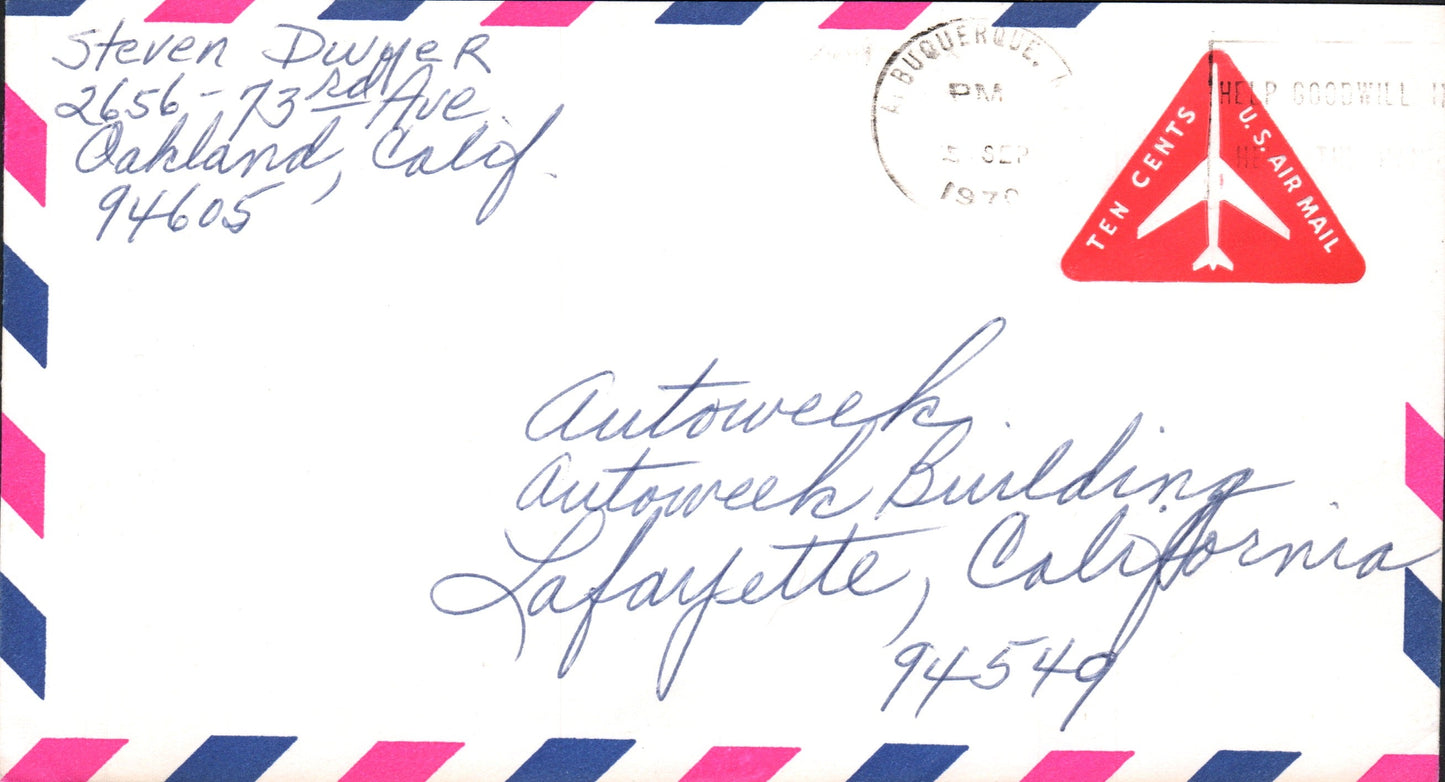 Steven Dwyer
2656 - 73rd Ave
Oakland, Calif.
94605
ALBUQUERQUE,
PM
SEP
1970
HELP GOODWILL
TEN CENTS
U.S. AIR MAIL
Autoweek
Autoweek Building
Lafayette, California
94549